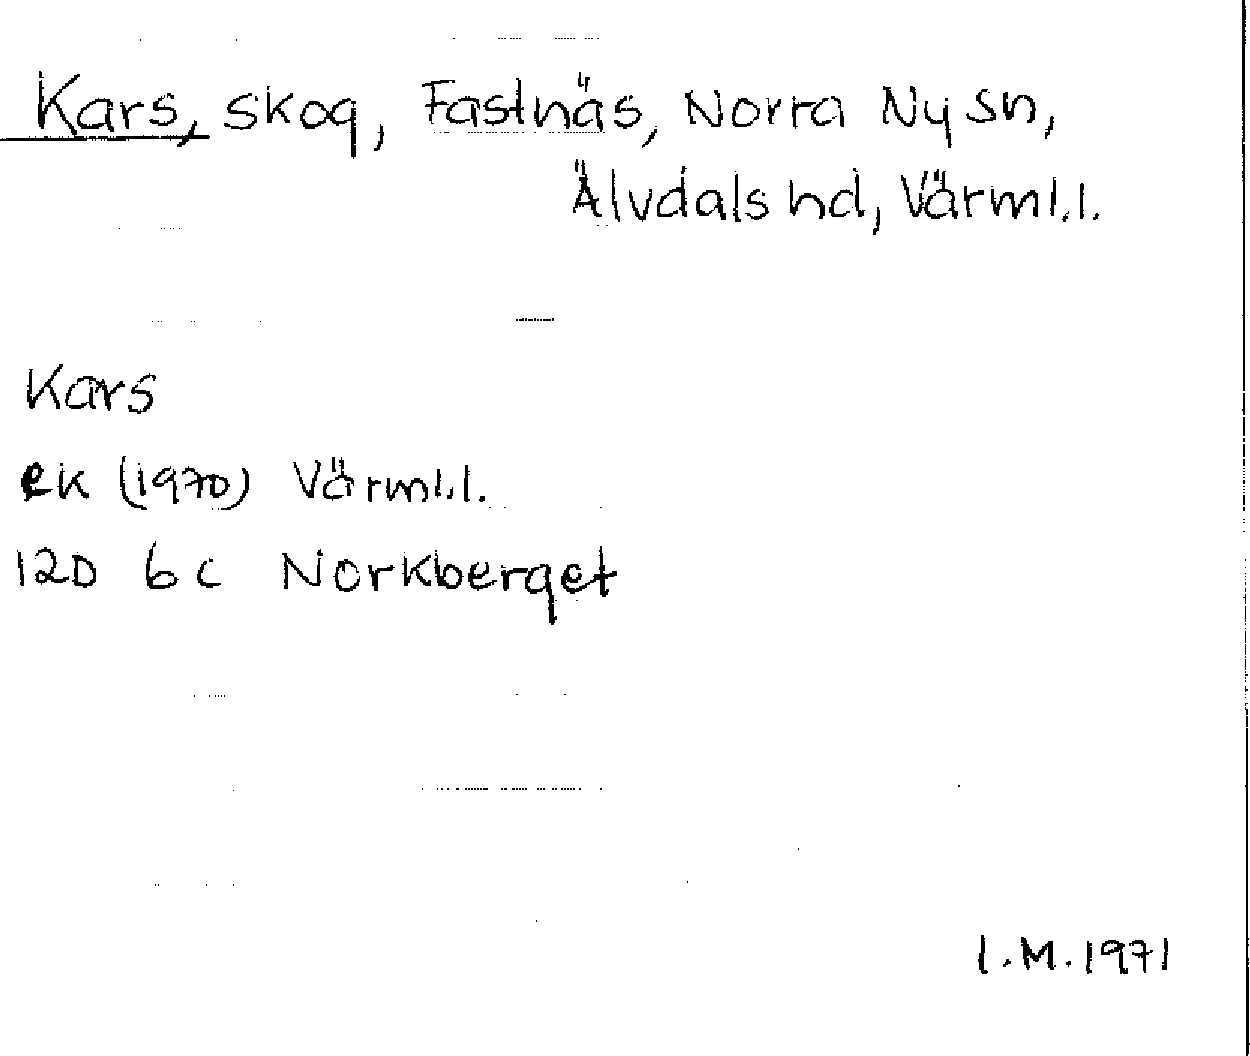 Kars, skog, Fastnäs, Norra Ny sn,
Älvdals hd, Värml.l.
Kars
ek (1970) Värml.l.
12D 6c Norkberget
I.M.1971